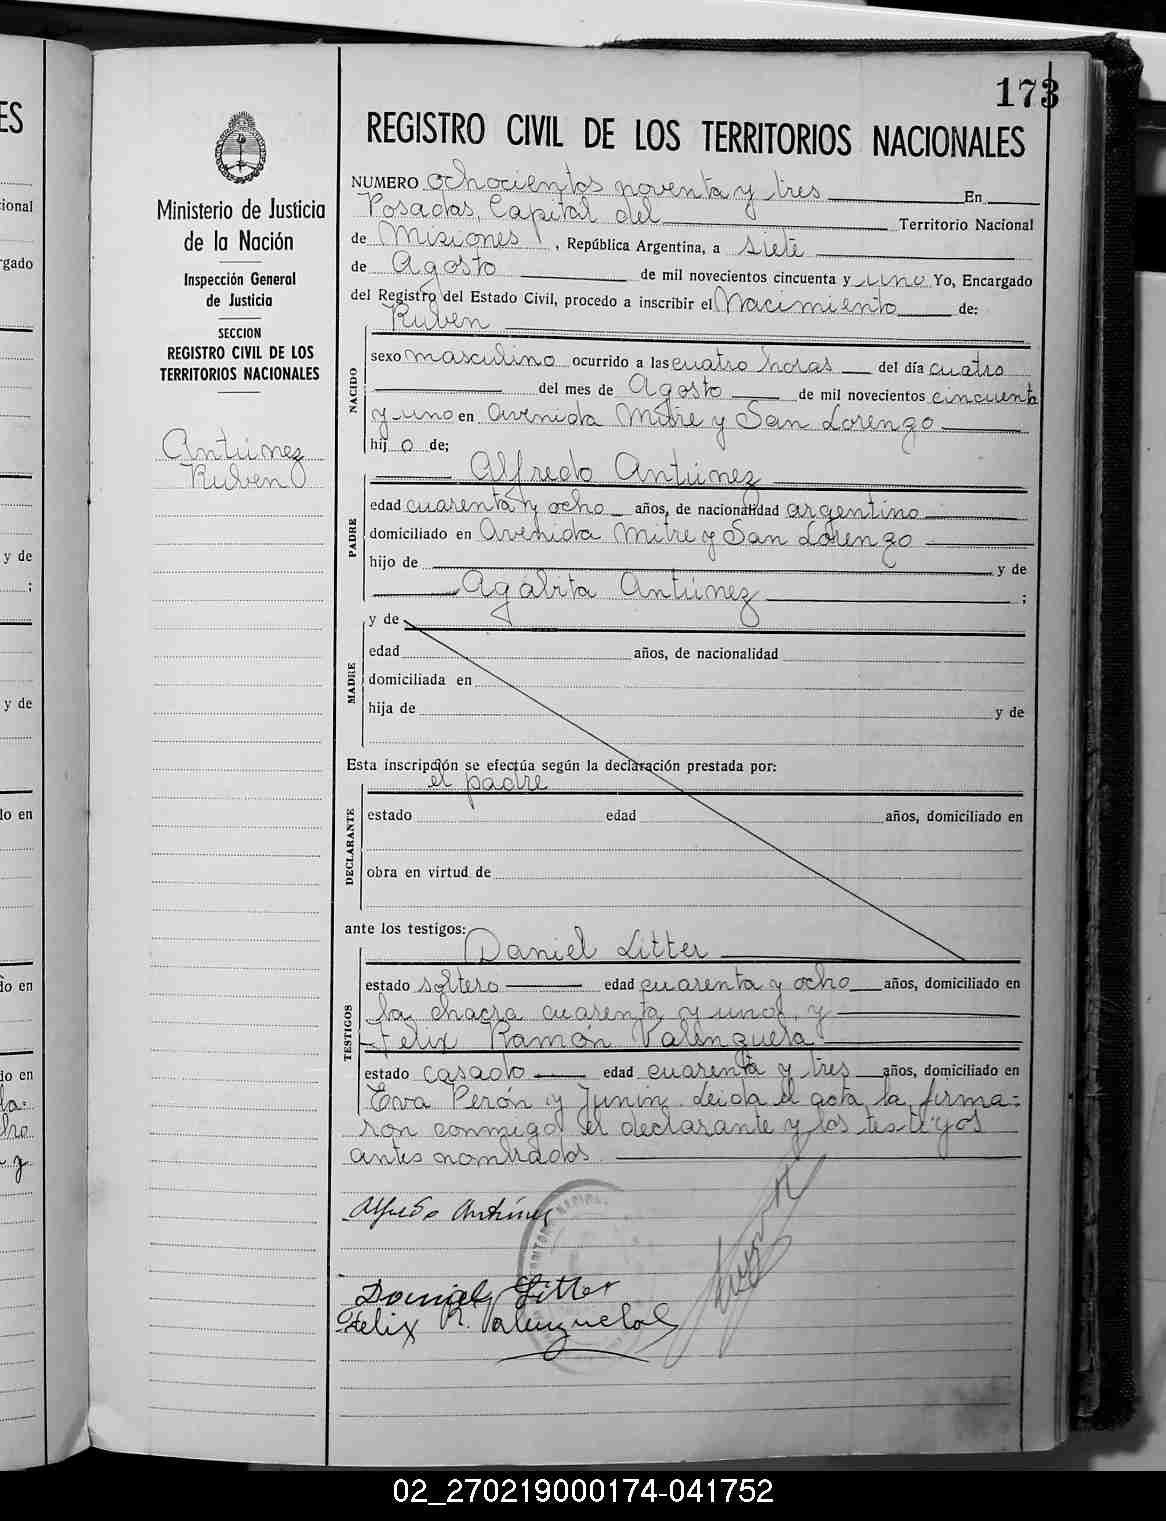 173
REGISTRO CIVIL DE LOS TERRITORIOS NACIONALES
Ministerio de Justicia
de la Nación
Inspección General
de Justicia
SECCION
REGISTRO CIVIL DE LOS
TERRITORIOS NACIONALES
Antúnez
Ruben
NUMERO ochocientos noventa y tres En
Posadas, Capital del Territorio Nacional
de Misiones, República Argentina, a siete
de Agosto de mil novecientos cincuenta y uno Yo, Encargado
del Registro del Estado Civil, procedo a inscribir el Nacimiento de:
Ruben
NACIDO
sexo masculino ocurrido a las cuatro horas del día cuatro
del mes de Agosto de mil novecientos cincuenta
y uno en Avenida Mitre y San Lorenzo
hij o de;
Alfredo Antúnez
PADRE
edad cuarenta y ocho años, de nacionalidad argentino
domiciliado en Avenida Mitre y San Lorenzo
hijo de y de
Agabita Antúnez ;
MADRE
y de
edad años, de nacionalidad
domiciliada en
hija de y de
Esta inscripción se efectúa según la declaración prestada por:
el padre
DECLARANTE
estado edad años, domiciliado en
obra en virtud de
ante los testigos:
Daniel Litter
TESTIGOS
estado soltero edad cuarenta y ocho años, domiciliado en
la chacra cuarenta y uno, y
Felix Ramón Valenzuela
estado casado edad cuarenta y tres años, domiciliado en
Eva Perón y Junin. Leida el acta la firma=
ron conmigo el declarante y los testigos
antes nombrados.
Alfredo Antúnez
Daniel Litter
Felix R. Valenzuela
ES
ional
gado
y de
;
y de
do en
do en
do en
02_270219000174-041752